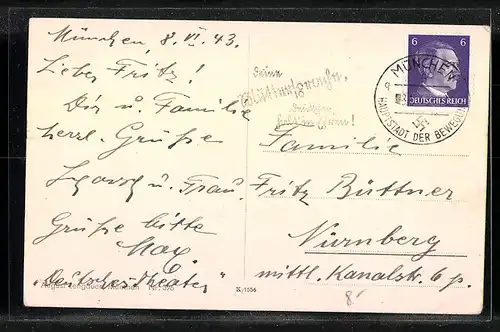 München, 8. VI. 43.
Lieber Fritz!
Dir u. Familie
herzl. Grüße
u. Frau.
Grüße bitte
Max
"Deutsches Theater"
August Lengauer, München Nr. 876
K/1556
Deine
6 6
DEUTSCHES REICH
MÜNCHEN
HAUPTSTADT DER BEWEGUNG
Familie
Fritz Büttner
Nürnberg
mittl. Kanalstr. 6 p.
8